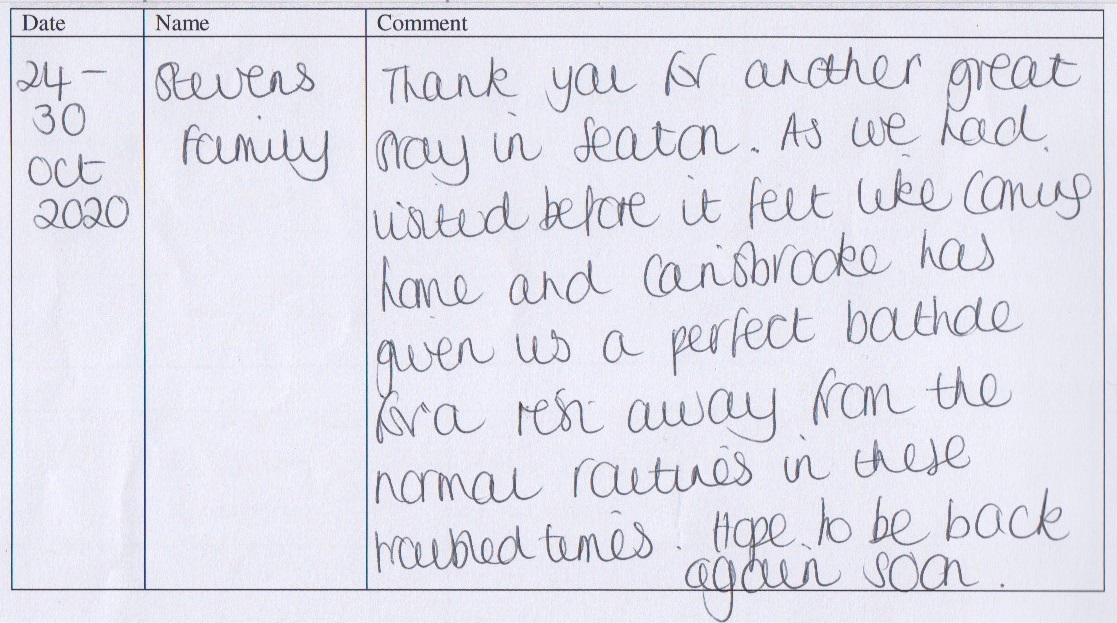 Date Name Comment
24 - Stevens Thank you for another great
30 Family stay in Seaton. As we had
Oct visited before it felt like coming
2020 home and Carisbrooke has
given us a perfect bolthole
for a rest away from the
normal routines in these
troubled times. Hope to be back
again soon.